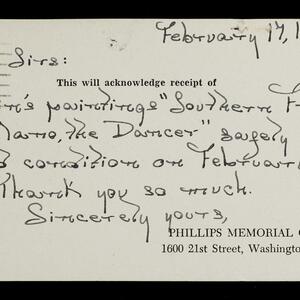 February 17, 1
Sirs:
This will acknowledge receipt of
paintings "Southern
the Dancer" safely
condition on February
Thank you so much.
Sincerely yours,
PHILLIPS MEMORIAL
1600 21st Street, Washington